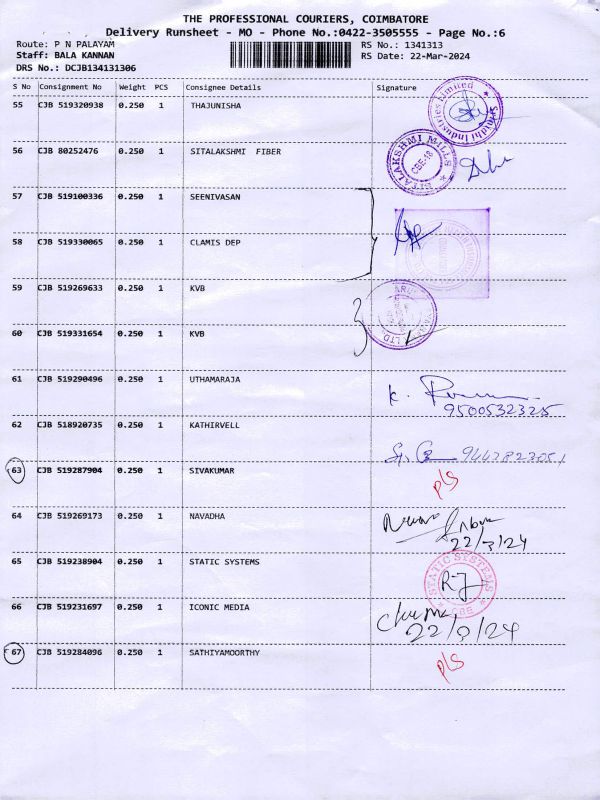 THE PROFESSIONAL COURIERS, COIMBATORE
Delivery Runsheet - MO - Phone No.:0422-3505555 - Page No.:6
Route: P N PALAYAM RS No.: 1341313
Staff: BALA KANNAN RS Date: 22-Mar-2024
DRS No.: DCJB134131306
S No Consignment No Weight PCS Consignee Details Signature
55 CJB 519320938 0.250 1 THAJUNISHA
56 CJB 80252476 0.250 1 SITALAKSHMI FIBER
SITALAKSHMI MILLS
CBE-18
57 CJB 519100336 0.250 1 SEENIVASAN
58 CJB 519330065 0.250 1 CLAMIS DEP
59 CJB 519269633 0.250 1 KVB
60 CJB 519331654 0.250 1 KVB
61 CJB 519290496 0.250 1 UTHAMARAJA
9500532325
62 CJB 518920735 0.250 1 KATHIRVELL
9443823051
63 CJB 519287904 0.250 1 SIVAKUMAR
pls
64 CJB 519269173 0.250 1 NAVADHA
22/3/24
65 CJB 519238904 0.250 1 STATIC SYSTEMS
STATIC SYSTEMS
CBE
66 CJB 519231697 0.250 1 ICONIC MEDIA
22/3/24
67 CJB 519284096 0.250 1 SATHIYAMOORTHY
pls